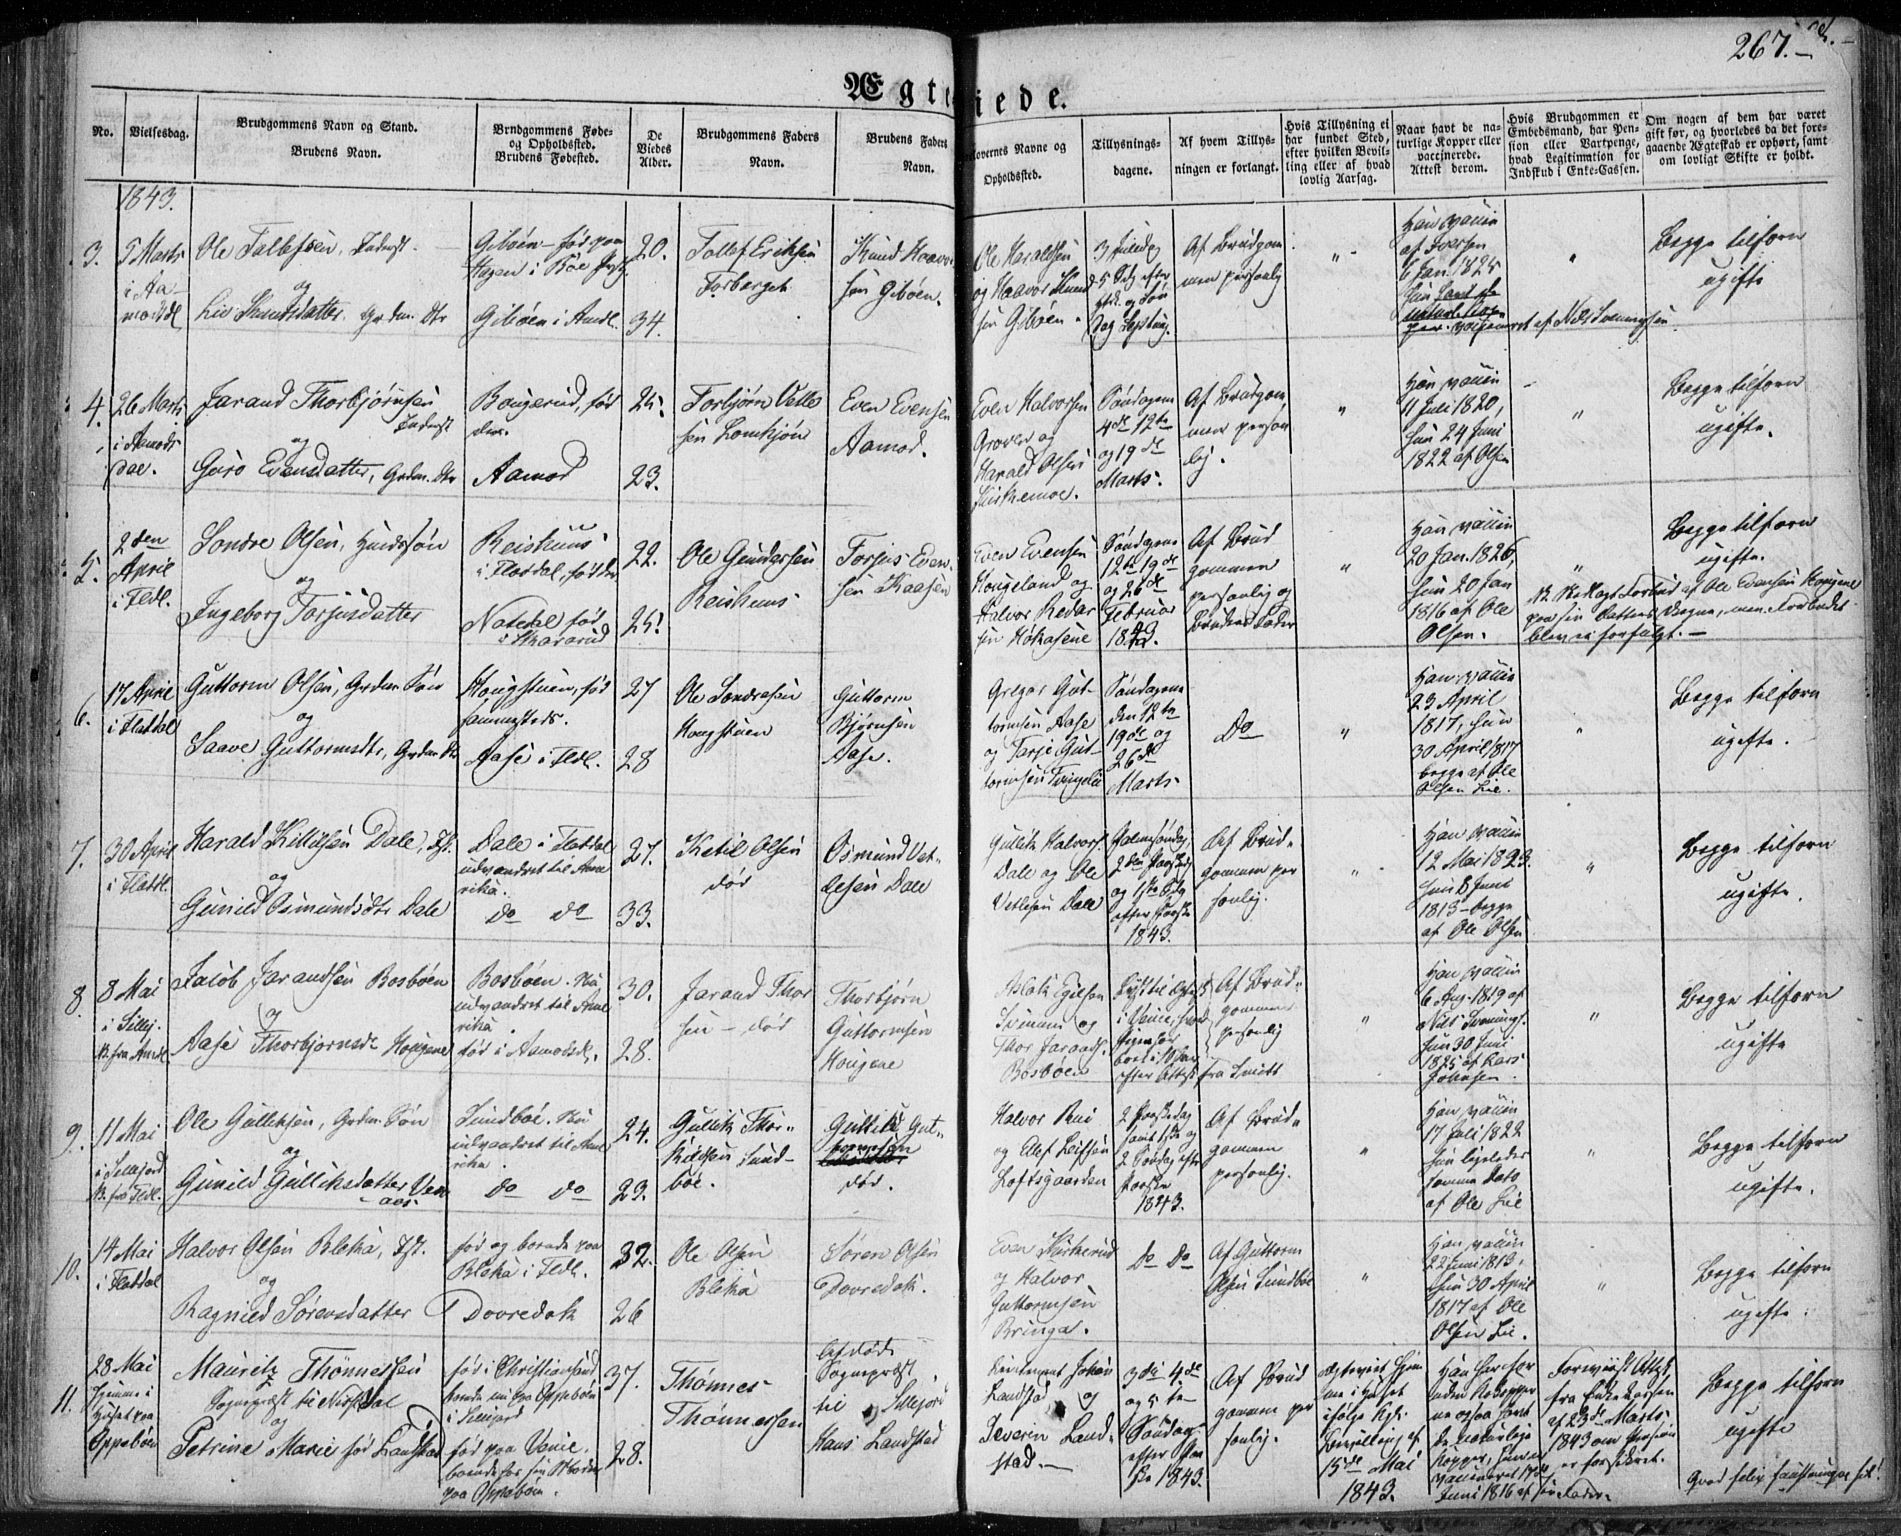 267.
Ægteviede.
No.
Vielsesdag.
Brudgommens Navn og Stand.
Brudens Navn.
Brudgommens Føde-
og Opholdssted.
Brudens Fødested.
De
Viedes
Alder.
Brudgommens Faders
Navn.
Brudens Faders
Navn.
Forlovernes Navne og
Opholdssted.
Tillysnings-
dagene.
Af hvem Tillys-
ningen er forlangt.
Hvis Tillysning ei
har fundet Sted,
efter hvilken Bevil-
ling eller af hvad
lovlig Aarsag.
Naar havt de na-
turlige Kopper eller
vaccinerede.
Attest derom.
Hvis Brudgommen er
Embedsmand, har Pen-
sion eller Vartpenge,
hvad Legitimation for
Indskud i Enke-Cassen.
Om nogen af dem har været
gift før, og hvorledes da det fore-
gaaende Ægteskab er ophørt, samt
om lovligt Skifte er holdt.
1843.
3.
5 Marts
i Aa-
modsdl
Ole Tallefsen, Inderst
og
Liv Knudsdatter, Grdm. Dtr
Gibøen - fød paa
Hagen i Bøe
Gibøen i Amdl.
20.
34.
Tollef Eriksen
Forberget
Knud Haavor
sen Gibøen.
Ole Haraldsen
og Haavor Knud
sen Gibøen.
Af Brudgom
men personlig
Han vaccin
af Iversen
6 Jan. 1825
Begge tilforn
ugifte
4.
26 Marts
i Aamods
dal.
Jarand Thorbjørnsen
Inderst
og
Guro Evensdatter, Grdm. Dtr
Bougerud, fød
der.
Aamod
25.
23.
Torbjørn Vetle
sen Lomkjøn
Even Evensen
Aamod.
Even Halvorsen
Graver og
Harald Olsen
Søndagene
4de 12te
og 19de
Marts.
Af Brudgom
men person
lig.
Han vaccin
11 Juli 1820,
Hun 24 Juni
1822 af Olsen
Begge tilforn
ugifte.
5.
2den
April
i Fldl.
Sondre Olsen, Huusson
og
Ingeborg Torjusdatter
Reishuus
i Flatdal, fød der
Natedal fød
22.
25.
Ole Gundersen
Reishuus
Torjus Even
sen Kaasen
Even Evensen
Hougeland og
Halvor
Søndagene
12te 19de
og 26de
Februar
1843.
Af Brud
gommen
personlig og
Brudens Fader
Han vaccin
20 Jan. 1826,
Hun 20 Jan
1816 af Ole
Olsen.
Begge tilforn
ugifte.
blev ei forfulgt. -
6.
17 April
i Flatdal
Guttorm Olsen, Grdm Søn
og
Saave Guttormsdtr, Grdm Dtr
Hougstuen, fød
sammesteds.
Aase i Fldl.
27
28
Ole Sondresen
Hougstuen
Guttorm
Bjørnsen
Aase.
Gregar Gut-
tormsen Aase
og Tarje Gut-
tormsen
Søndagene
den 12te
19de og
26de
Marts
Do
Han vaccin
23 April
1817, Hun
30 April 1817
begge af Ole
Olsen Lie.
Begge tilforn
ugifte.
7.
30 April
i Flatdl.
Harald Kittilsen Dale, Ist.
og
Gunild Osmundsdtr Dale
Dale i Flatdal
udvandret til Ame
rika.
Do Do
27.
33.
Ketil Olsen
død
Osmund Vet-
lesen Dale
Gullek Halvors
Dale og Ole
Vetlesen Dale
Palmesøndag,
2den Paaskedg
og 1ste Sdg
efter Paaske
1843.
Af Brud-
gommen per
sonlig.
Han vaccin
12 Mai 1823.
Hun 8 Juni
1813 - begge
af Ole Olsen
Begge tilforn
ugifte.
8.
8 Mai
i Sillej.
N. fra Amdl
Jacob Jarandsen Bosbøen
og
Aase Thorbjørnsdr Hougene
Bosbøen. Nu
udvandret til Ame
rika
fød i Aamodsdl.
30.
28.
Jarand Thor
sen - død
Thorbjørn
Guttormsen
Hougene
Aslak Egilsen
og
Thor Jarands.
Bosbøen
Af Brud-
gommen
personlig
Han vaccin
6 Aug. 1819 af
Nils Svenings.
Hun 30 Juni
1825 af Lars
Johnsen.
Begge tilforn
ugifte
9.
11 Mai
i Sellejord
N. fra Fldl.
Ole Gulleksen, Grdm Søn
og
Gunild Gulliksdatter Ven
aas.
Sundbøe. Nu
udvandret til Ame
rika.
Do Do
24.
23.
Gullik Thor-
kildsen Sund-
bøe.
Gullik Gut-
tormsen
død.
Halvor Rui
og Ellef Leifsen
Loftsgaarden
2 Paaskedag
samt 1ste og
2 Søndag efter
Paaske
1843.
Af Brud-
gommen
personlig.
Han vaccin
17 Juli 1822
Hun ligeledes
samme Dato
af Ole Lie
Begge tilforn
ugifte.
10.
14 Mai
i Flatdal
Halvor Olsen Bleka, Ist.
og
Ragnild Sørensdatter
fød og boende paa
Bleka i Fldl.
Dovredak
32.
26
Ole Olsen
Bleka
Søren Olsen
Dovredak.
Even
og Halvor
Guttormsen
Bringa.
Do Do
Af Guttorm
Olsen Sundbøe
Han vaccin
22 Juni 1813,
Hun 30 April
1817 af Ole
Olsen Lie.
Begge tilforn
ugifte.
11.
28 Mai
hjemme i
Huset paa
Oppebøen
Mauritz Thønnesen
Sognepræst til Nissedal
og
Petrine Marie fød Landstad
fød i Christianssund
boende nu paa Oppebøen
i Sillejord
fød paa Vinie,
boende hos sin Moder
paa Oppebøen.
37.
28.
Thønnes
Thønnessen
Afdøde
Sognepræst
til Sillejord
Hans Landstad
Lieutenant Johan
Landstad og
Severin Land-
stad. -
3die 4de
og 5te
Søndag
efter Paa
ske 1843.
Af Brud
gommen per
sonlig.
Ægteviet hjem
me i Huset
ifølge Kgl.
Bevilling af
15de Mai
1843.
Juni 1816 af sin Fader.
Forevist Attest
fra Enke Kassen
af 23de Marts
1843 om Pension
er forsikret.
Begge tilforn
ugifte